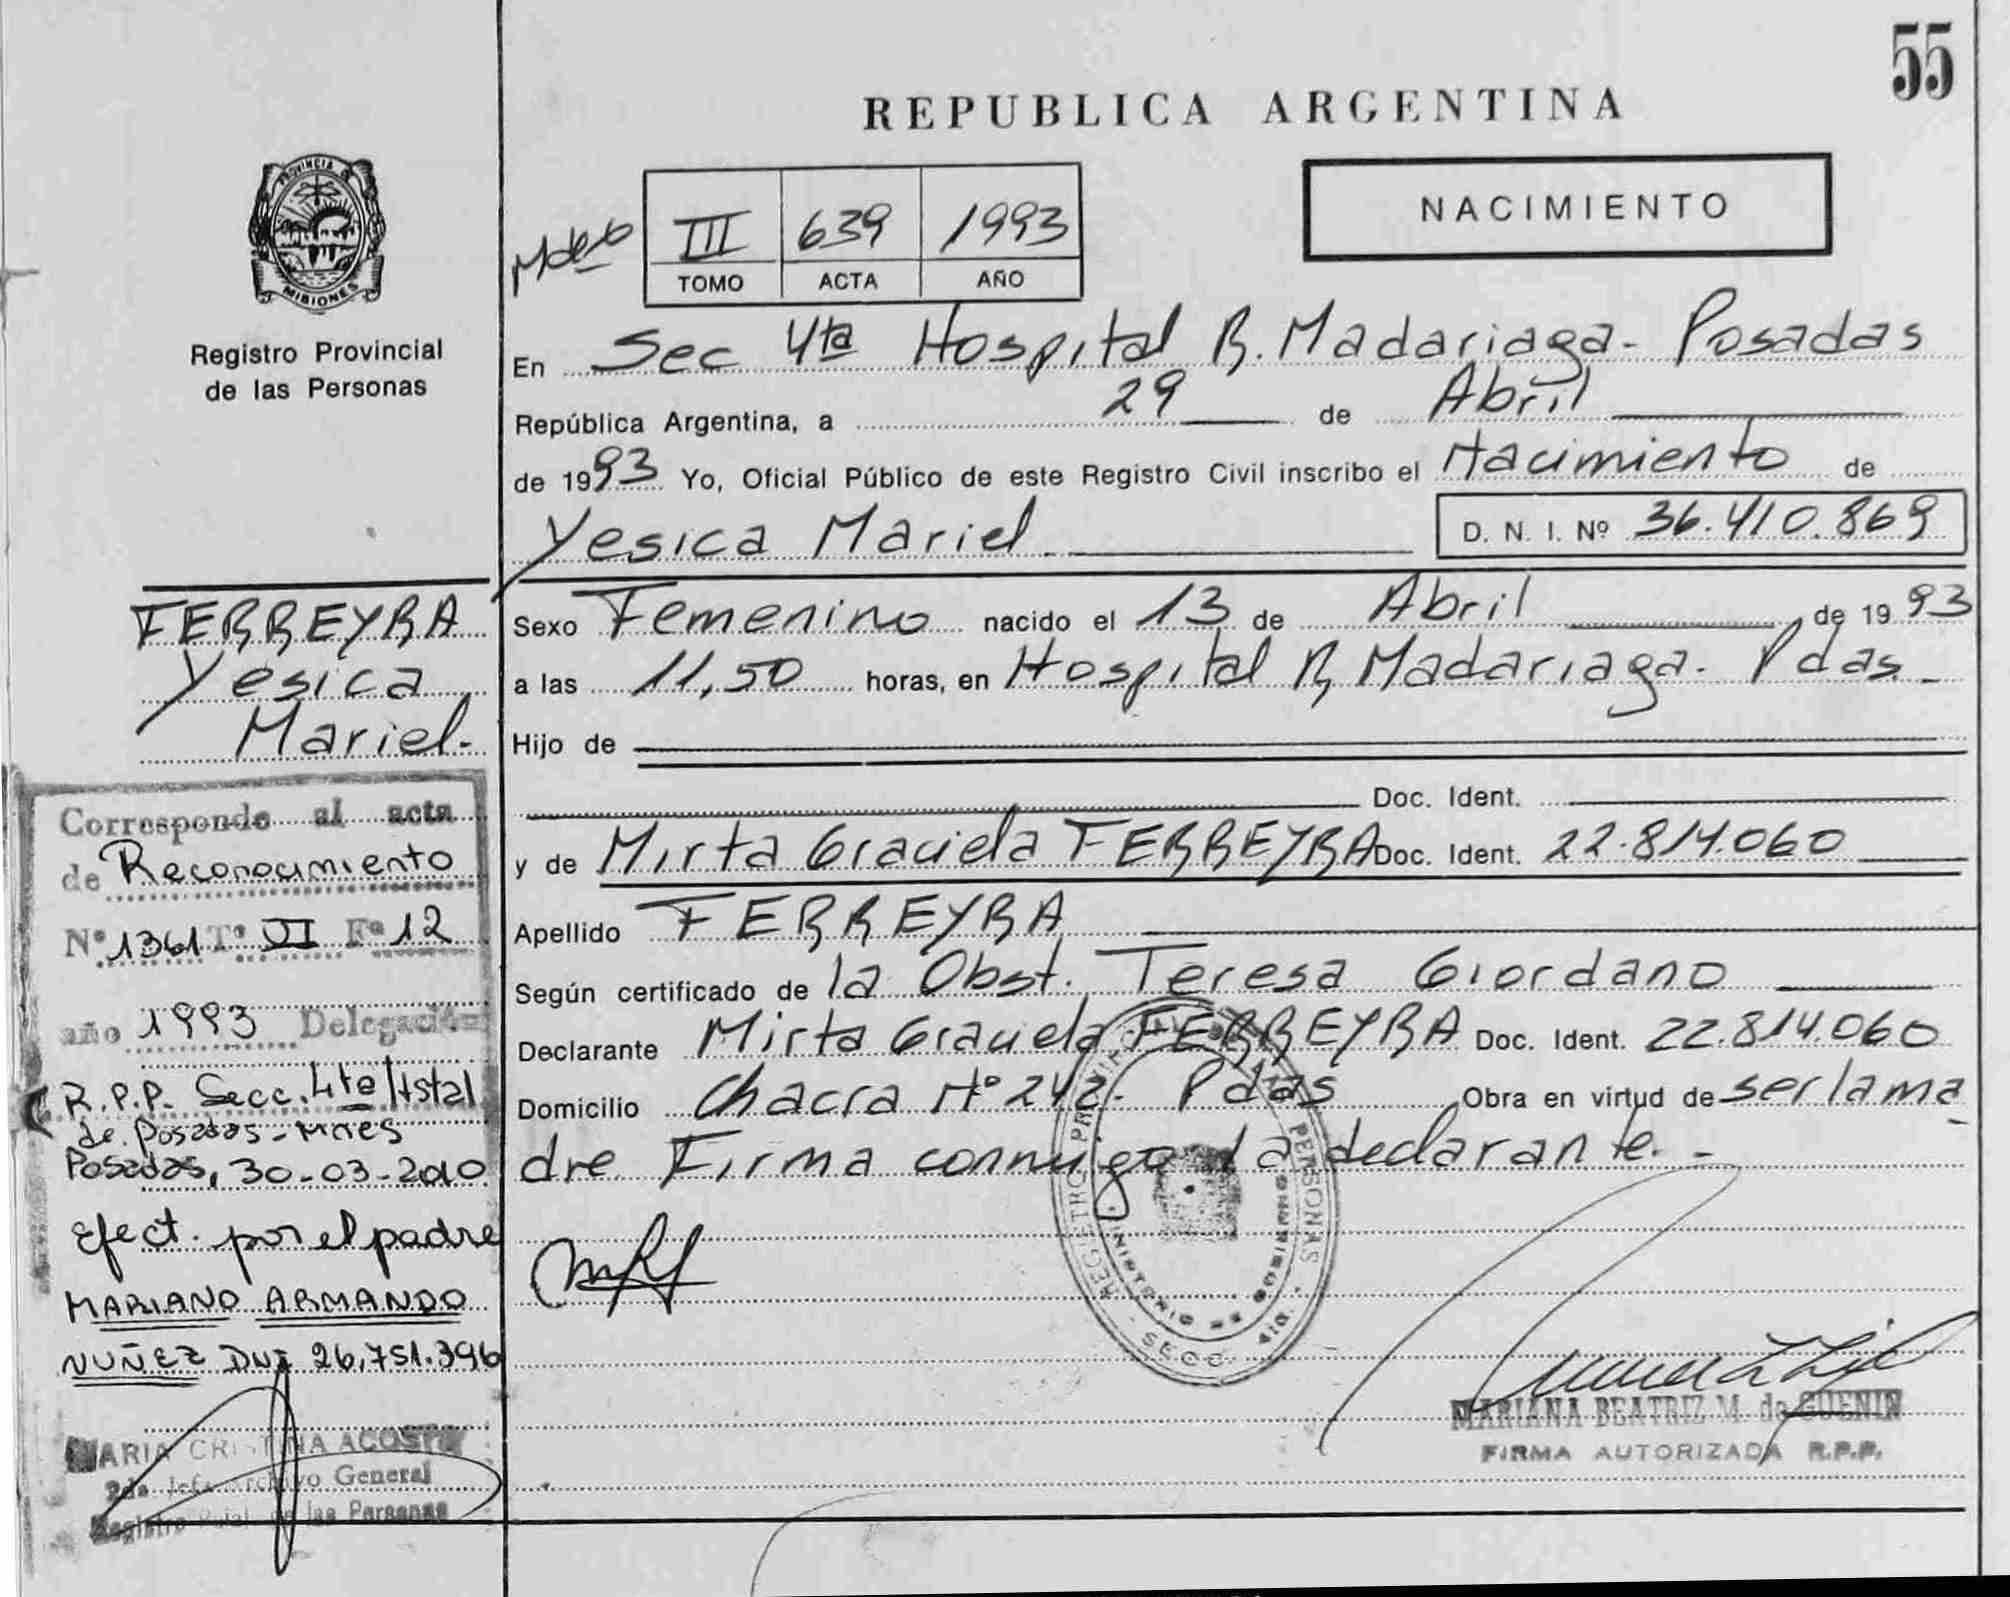 55
REPUBLICA ARGENTINA
NACIMIENTO
III 639 1993
TOMO ACTA AÑO
PROVINCIA DE
MISIONES
Registro Provincial
de las Personas
En Sec 4ta Hospital R. Madariaga - Posadas
República Argentina, a 29 de Abril
de 1993 Yo, Oficial Público de este Registro Civil inscribo el Nacimiento de
Yesica Mariel D. N. I. Nº 36.410.869
FERREYRA
Yesica
Mariel.-
Sexo Femenino nacido el 13 de Abril de 1993
a las 11,50 horas, en Hospital R, Madariaga. Pdas. -
Hijo de
Doc. Ident.
y de Mirta Graciela FERREYRA Doc. Ident. 22.814.060
Apellido FERREYRA
Según certificado de la Obst. Teresa Giordano
Declarante Mirta Graciela FERREYRA Doc. Ident. 22.814.060
Domicilio Chacra Nº 242.- Pdas Obra en virtud de ser la ma
dre Firma conmigo la declarante. -
Corresponde al acta
de Reconocimiento
Nº 1361 Tº VI Fº 12
año 1993 Delegación
R.P.P. Secc. 4ta Hstal
de Posadas - Mnes
Posadas, 30-03-2010
Efect. por el padre
MARIANO ARMANDO
NUÑEZ DNI 26.751.396
MARIA CRISTINA ACOSTA
2da Jefe Archivo General
Registro Pcial. de las Personas
REGISTRO PROVINCIAL DE LAS PERSONAS
MINISTERIO DE GOBIERNO
SECC. 4ta.
MARIANA BEATRIZ M. de GUENIN
FIRMA AUTORIZADA R.P.P.